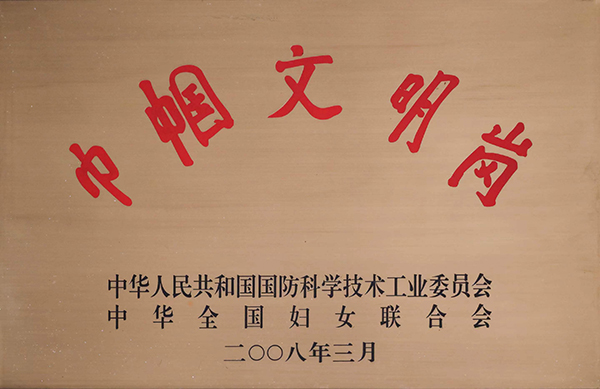 巾帼文明岗
中华人民共和国国防科学技术工业委员会
中华全国妇女联合会
二〇〇八年三月